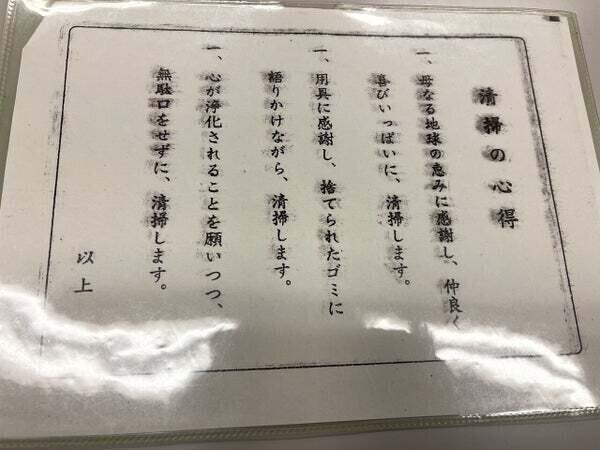 清掃の心得
一、母なる地球の恵みに感謝し、仲良く
喜びいっぱいに、清掃します。
一、用具に感謝し、捨てられたゴミに
語りかけながら、清掃します。
一、心が浄化されることを願いつつ、
無駄口をせずに、清掃します。
以上